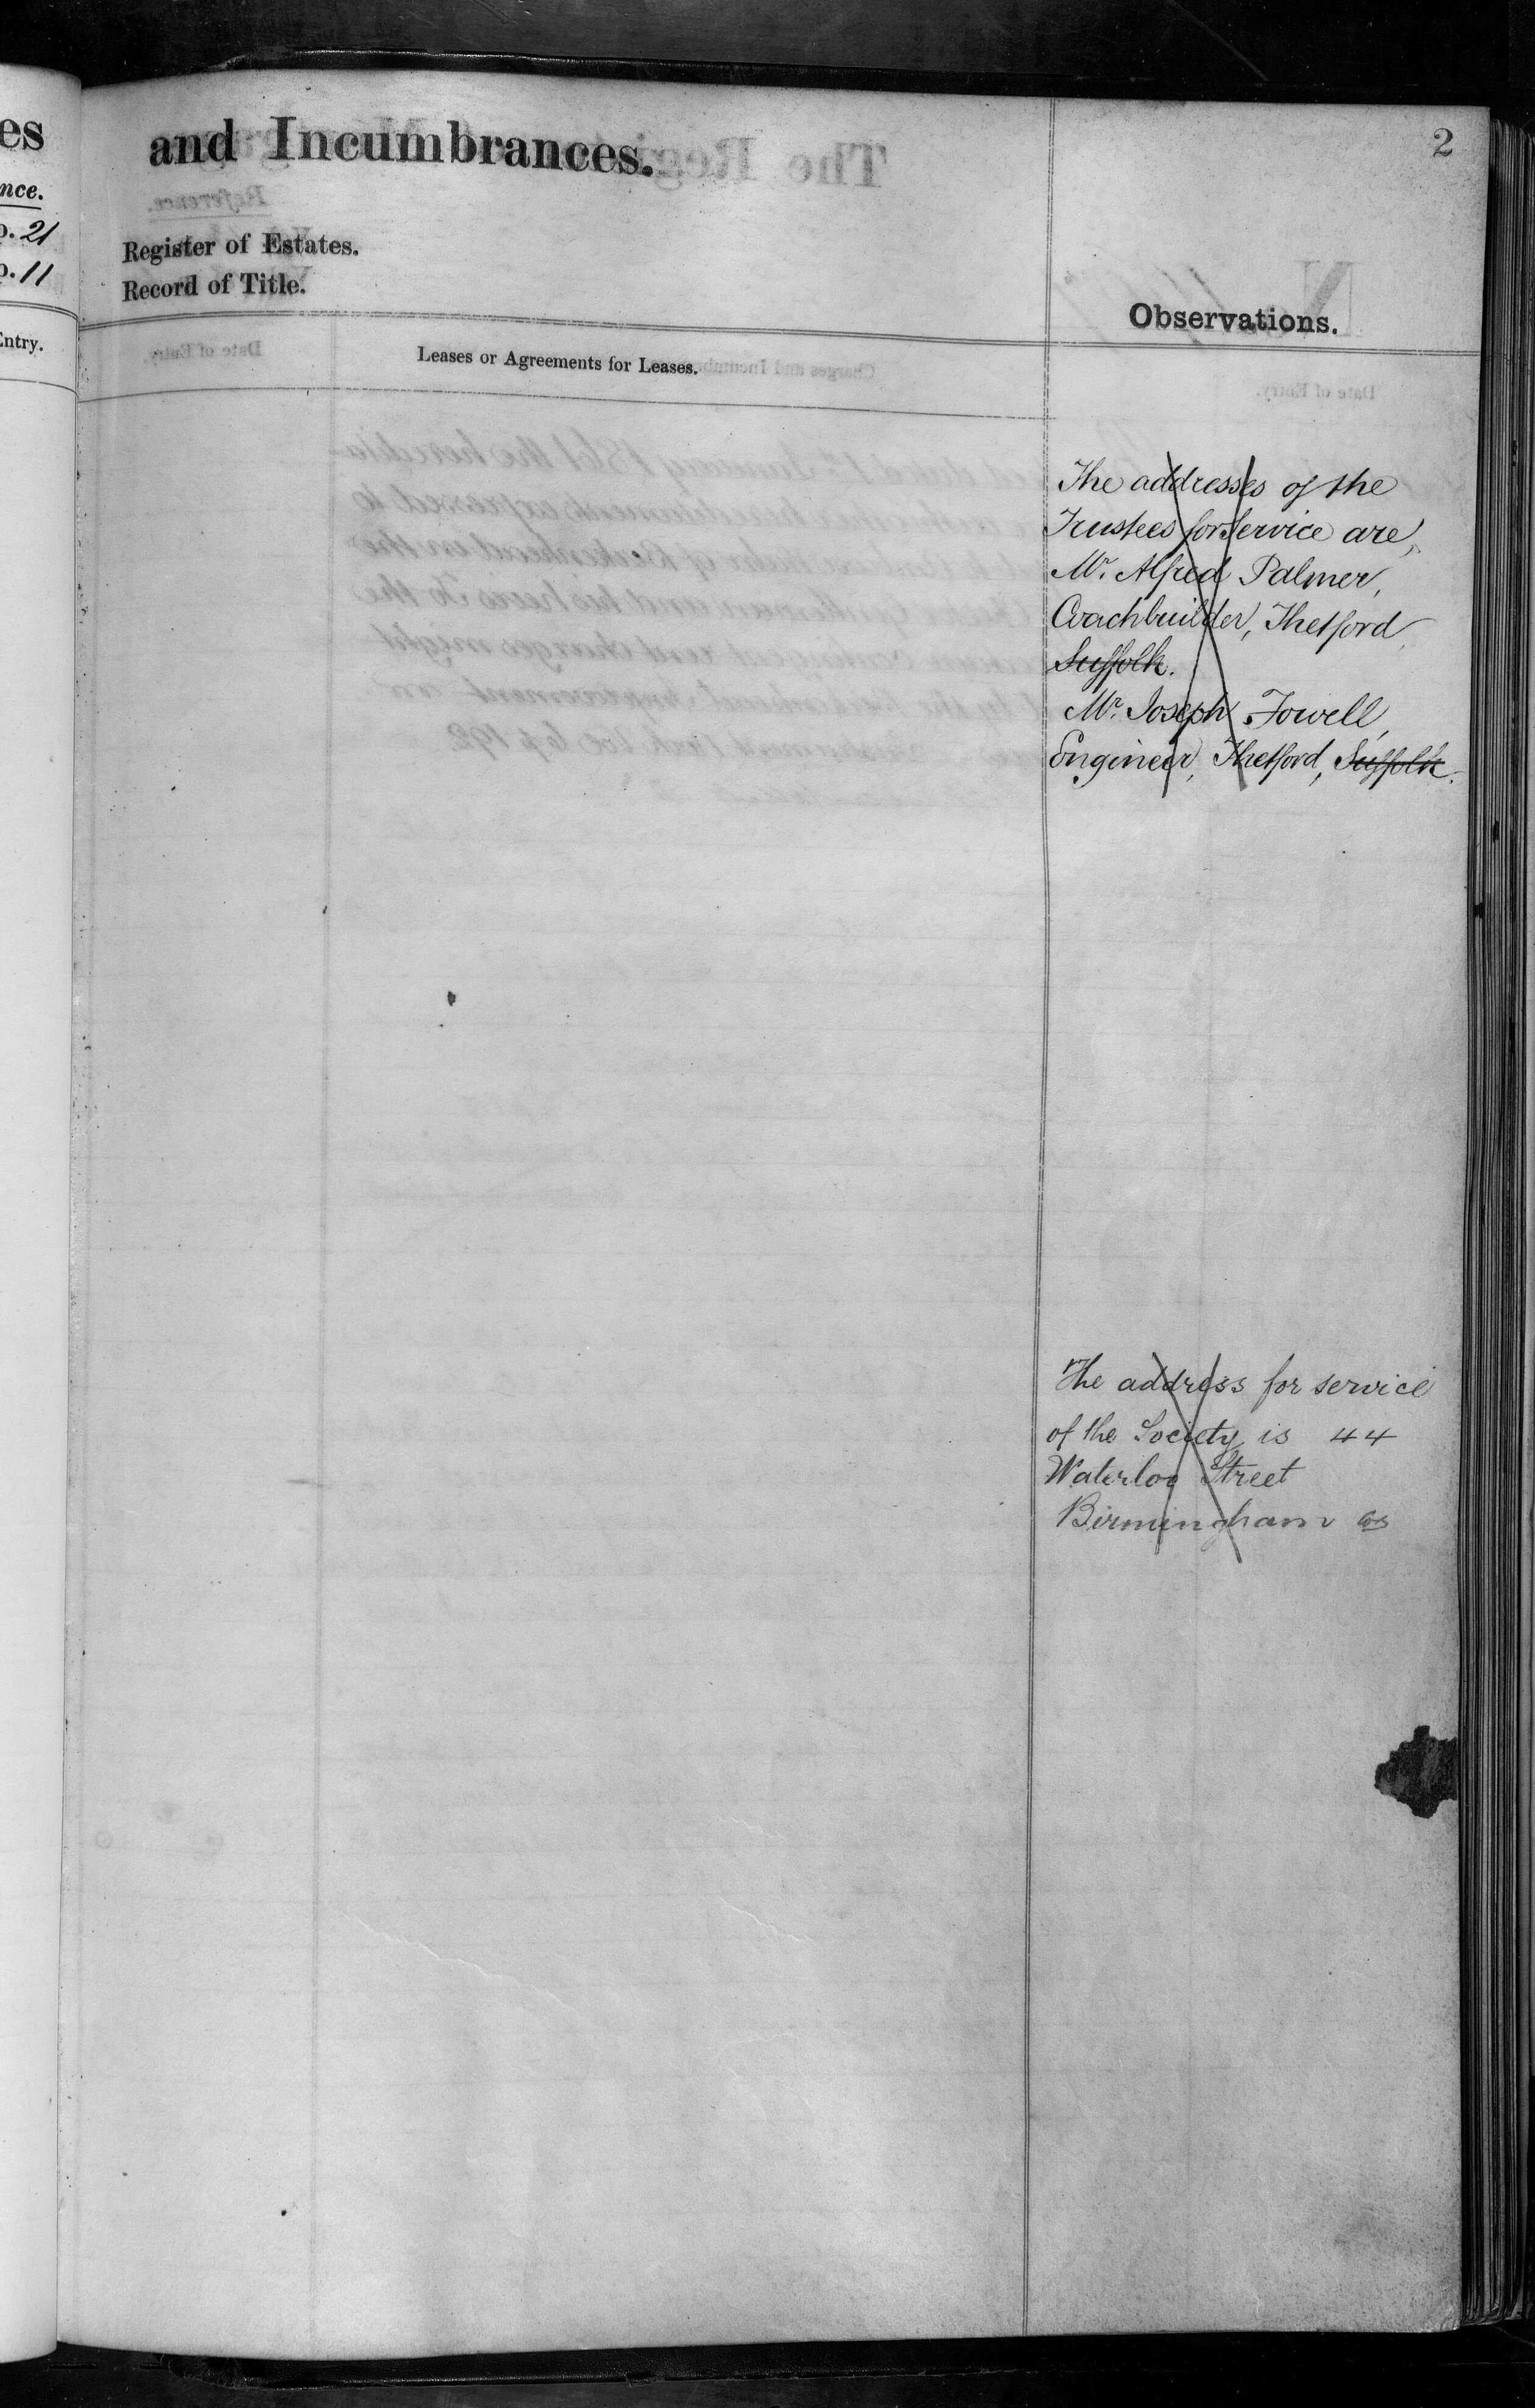 es
nce.
p. 21
p. 11
Entry.
and Incumbrances.
2
Register of Estates.
Record of Title.
Observations.
Leases or Agreements for Leases.
The addresses of the
Trustees for Service are,
Mr. Alfred Palmer,
Coachbuilder, Thetford
Suffolk.
Mr. Joseph Fowell,
Engineer, Thetford, Suffolk.
The address for service
of the Society is 44
Waterloo Street
Birmingham